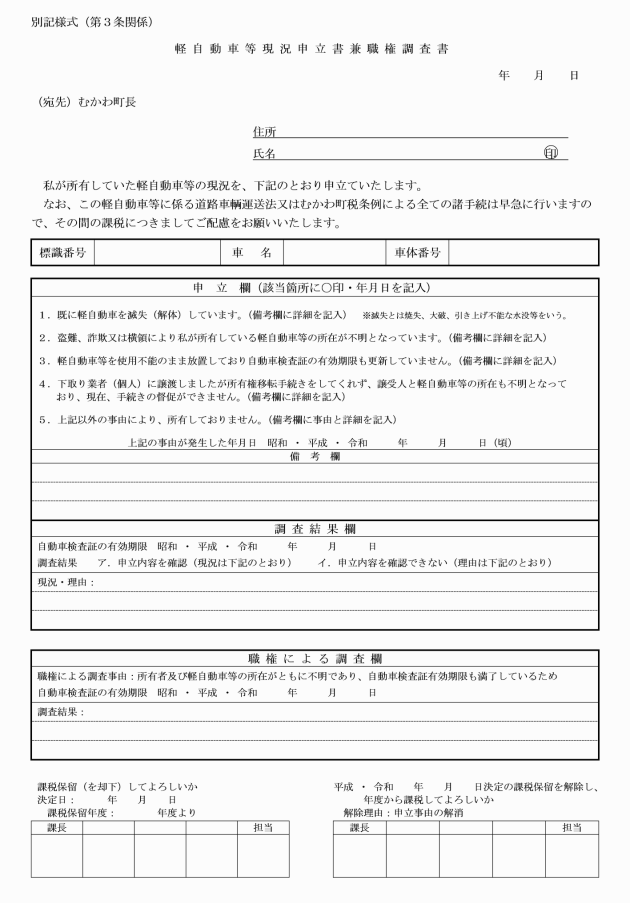 別記様式（第３条関係）
軽自動車等現況申立書兼職権調査書
年　　月　　日
（宛先）むかわ町長
住所
氏名　㊞
私が所有していた軽自動車等の現況を、下記のとおり申立ていたします。
なお、この軽自動車等に係る道路車輌運送法又はむかわ町税条例による全ての諸手続は早急に行いますの
で、その間の課税につきましてご配慮をお願いいたします。
標識番号　車　名　車体番号
申　立　欄（該当箇所に〇印・年月日を記入）
１．既に軽自動車を滅失（解体）しています。（備考欄に詳細を記入）　※滅失とは焼失、大破、引き上げ不能な水没等をいう。
２．盗難、詐欺又は横領により私が所有している軽自動車等の所在が不明となっています。（備考欄に詳細を記入）
３．軽自動車等を使用不能のまま放置しており自動車検査証の有効期限も更新していません。（備考欄に詳細を記入）
４．下取り業者（個人）に譲渡しましたが所有権移転手続きをしてくれず、譲受人と軽自動車等の所在も不明となって
おり、現在、手続きの督促ができません。（備考欄に詳細を記入）
５．上記以外の事由により、所有しておりません。（備考欄に事由と詳細を記入）
上記の事由が発生した年月日　昭和 ・ 平成 ・ 令和　　　年　　　月　　　日（頃）
備　考　欄
調査結果欄
自動車検査証の有効期限　昭和 ・ 平成 ・ 令和　　　年　　　月　　　日
調査結果　　ア．申立内容を確認（現況は下記のとおり）　　イ．申立内容を確認できない（理由は下記のとおり）
現況・理由：
職権による調査欄
職権による調査事由：所有者及び軽自動車等の所在がともに不明であり、自動車検査証有効期限も満了しているため
自動車検査証の有効期限　昭和 ・ 平成 ・ 令和　　　年　　　月　　　日
調査結果：
課税保留（を却下）してよろしいか
決定日：　　　年　　月　　日
課税保留年度：　　　　年度より
課長　担当
平成 ・ 令和　　年　　月　　日決定の課税保留を解除し、
年度から課税してよろしいか
解除理由：申立事由の解消
課長　担当